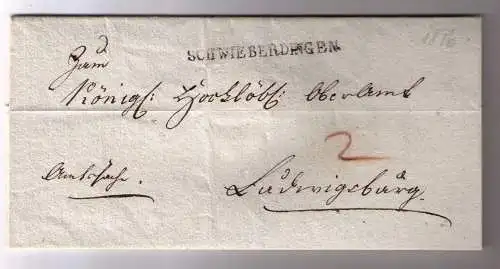 SCHWIEBERDINGEN.
Zum
Königl: Hochlöbl: OberAmt
2
Amtssache.
Ludwigsburg.